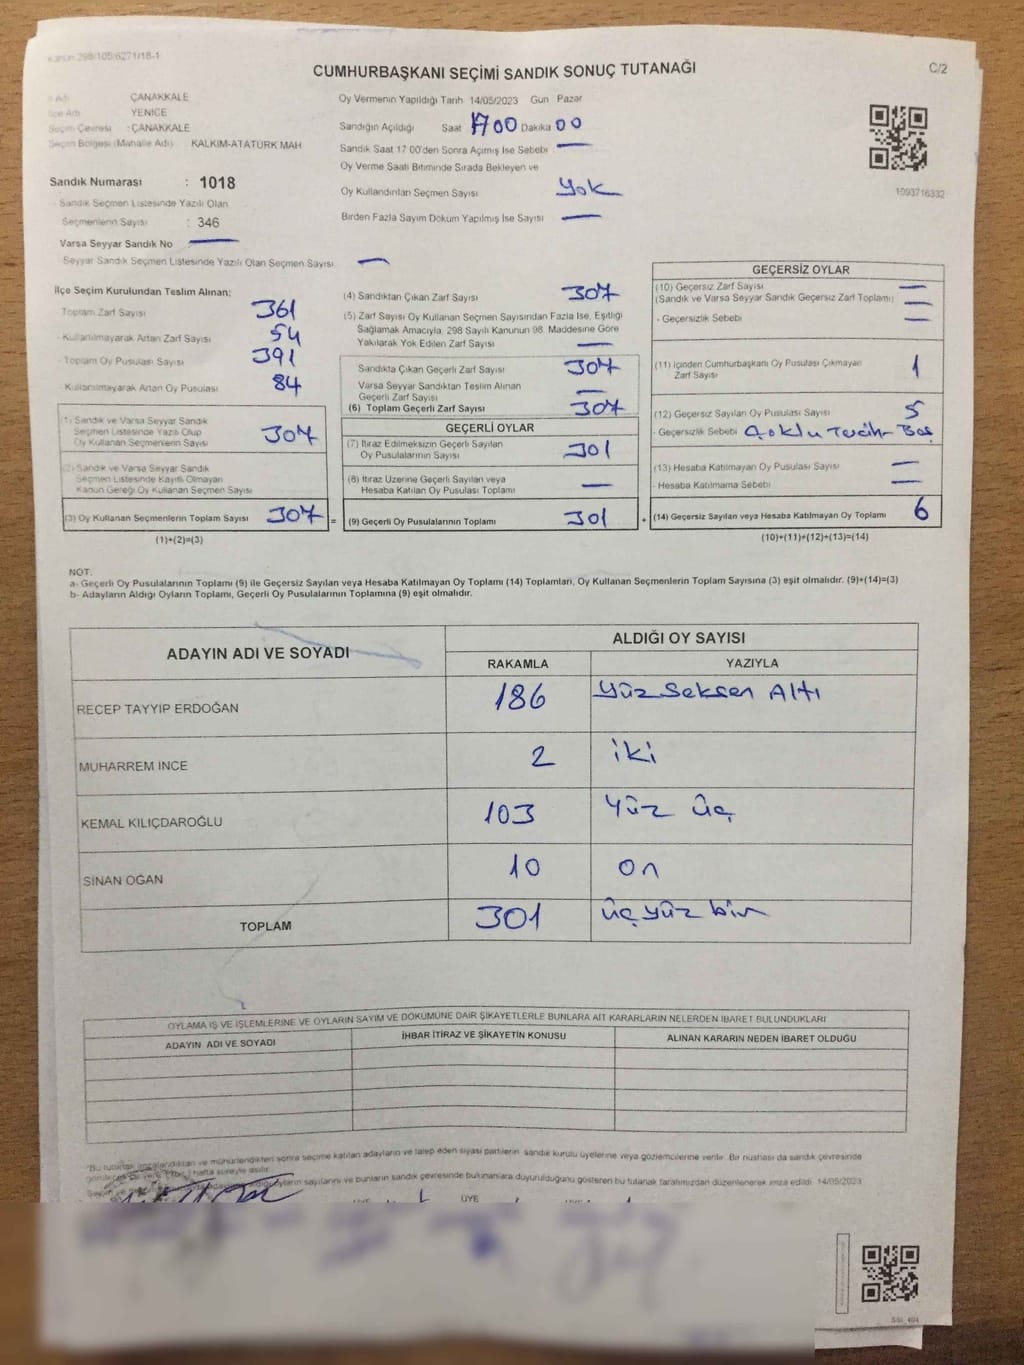 Kanun 298/105/6271/18-1
CUMHURBAŞKANI SEÇİMİ SANDIK SONUÇ TUTANAĞI
C/2
İl Adı ÇANAKKALE
İlçe Adı YENİCE
Seçim Çevresi : ÇANAKKALE
Seçim Bölgesi (Mahalle Adı) KALKIM-ATATÜRK MAH
Sandık Numarası : 1018
Sandık Seçmen Listesinde Yazılı Olan
Seçmenlerin Sayısı : 346
Varsa Seyyar Sandık No —
Seyyar Sandık Seçmen Listesinde Yazılı Olan Seçmen Sayısı —
Oy Vermenin Yapıldığı Tarih 14/05/2023 Gün Pazar
Sandığın Açıldığı Saat 1700 Dakika 00
Sandık Saat 17 00'den Sonra Açımış İse Sebebi —
Oy Verme Saati Bitiminde Sırada Bekleyen ve
Oy Kullandırılan Seçmen Sayısı Yok
Birden Fazla Sayım Döküm Yapılmış İse Sayısı —
1093716332
İlçe Seçim Kurulundan Teslim Alınan:
Toplam Zarf Sayısı 361
- Kullanılmayarak Artan Zarf Sayısı 54
- Toplam Oy Pusulası Sayısı 391
Kullanılmayarak Artan Oy Pusulası 84
(1) Sandık ve Varsa Seyyar Sandık
Seçmen Listesinde Yazılı Olup
Oy Kullanan Seçmenlerin Sayısı 307
(2) Sandık ve Varsa Seyyar Sandık
Seçmen Listesinde Kayıtlı Olmayan
Kanun Gereği Oy Kullanan Seçmen Sayısı
(3) Oy Kullanan Seçmenlerin Toplam Sayısı 307 =
(1)+(2)=(3)
(4) Sandıktan Çıkan Zarf Sayısı 307
(5) Zarf Sayısı Oy Kullanan Seçmen Sayısından Fazla İse, Eşitliği
Sağlamak Amacıyla, 298 Sayılı Kanunun 98. Maddesine Göre
Yakılarak Yok Edilen Zarf Sayısı —
Sandıkta Çıkan Geçerli Zarf Sayısı 307
Varsa Seyyar Sandıktan Teslim Alınan
Geçerli Zarf Sayısı —
(6) Toplam Geçerli Zarf Sayısı 307
GEÇERLİ OYLAR
(7) İtiraz Edilmeksizin Geçerli Sayılan
Oy Pusulalarının Sayısı 301
(8) İtiraz Üzerine Geçerli Sayılan veya
Hesaba Katılan Oy Pusulası Toplamı —
(9) Geçerli Oy Pusulalarının Toplamı 301 +
GEÇERSİZ OYLAR
(10) Geçersiz Zarf Sayısı —
(Sandık ve Varsa Seyyar Sandık Geçersiz Zarf Toplamı) —
- Geçersizlik Sebebi —
(11) İçinden Cumhurbaşkanı Oy Pusulası Çıkmayan
Zarf Sayısı 1
(12) Geçersiz Sayılan Oy Pusulası Sayısı 5
- Geçersizlik Sebebi Çoklu Tercih- Boş
(13) Hesaba Katılmayan Oy Pusulası Sayısı —
- Hesaba Katılmama Sebebi —
(14) Geçersiz Sayılan veya Hesaba Katılmayan Oy Toplamı 6
(10)+(11)+(12)+(13)=(14)
NOT:
a- Geçerli Oy Pusulalarının Toplamı (9) ile Geçersiz Sayılan veya Hesaba Katılmayan Oy Toplamı (14) Toplamları, Oy Kullanan Seçmenlerin Toplam Sayısına (3) eşit olmalıdır. (9)+(14)=(3)
b- Adayların Aldığı Oyların Toplamı, Geçerli Oy Pusulalarının Toplamına (9) eşit olmalıdır.
ADAYIN ADI VE SOYADI
ALDIĞI OY SAYISI
RAKAMLA YAZIYLA
RECEP TAYYİP ERDOĞAN 186 Yüz Seksen Altı
MUHARREM İNCE 2 iki
KEMAL KILIÇDAROĞLU 103 Yüz üç
SİNAN OĞAN 10 on
TOPLAM 301 üçyüz bir
OYLAMA İŞ VE İŞLEMLERİNE VE OYLARIN SAYIM VE DÖKÜMÜNE DAİR ŞİKAYETLERLE BUNLARA AİT KARARLARIN NELERDEN İBARET BULUNDUKLARI
ADAYIN ADI VE SOYADI İHBAR İTİRAZ VE ŞİKAYETİN KONUSU ALINAN KARARIN NEDEN İBARET OLDUĞU
"Bu tutanak imzalandıktan ve mühürlendikten sonra seçime katılan adayların ve talep eden siyasi partilerin sandık kurulu üyelerine veya gözlemcilerine verilir. Bir nüshası da sandık çevresinde
hafta süreyle asılır.
oyların sayılarını ve bunların sandık çevresinde bulunanlara duyurulduğunu gösteren bu tutanak tarafımızdan düzenlenerek imza edildi. 14/05/2023
ÜYE